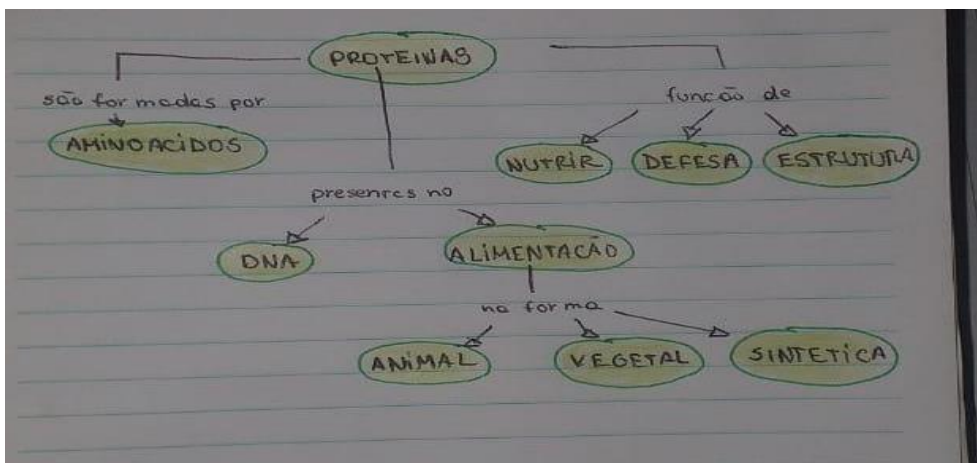 PROTEINAS
são formadas por
AMINOACIDOS
funcão de
NUTRIR
DEFESA
ESTRUTURA
presentes no
DNA
ALIMENTACÃO
na forma
ANIMAL
VEGETAL
SINTETICA